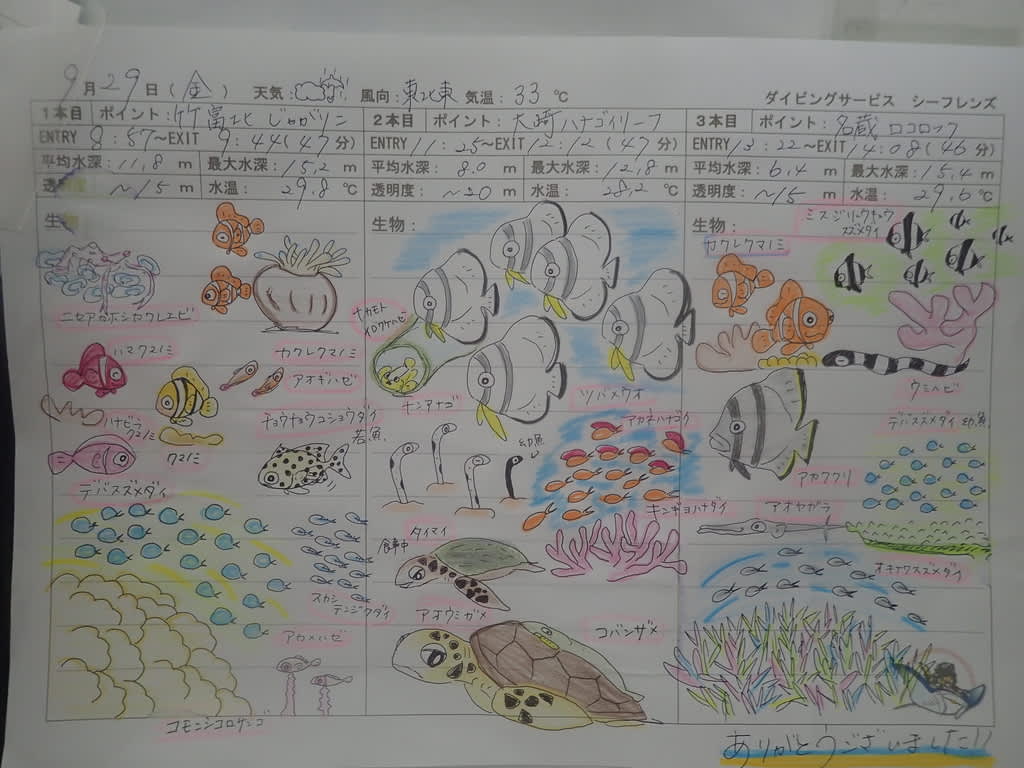 9月29日(金) 天気: 風向:東北東 気温:33℃
ダイビングサービス シーフレンズ
1本目 ポイント:竹富北 じゃがリコ
ENTRY 8:57〜EXIT 9:44(47分)
平均水深:11,8 m 最大水深:15,2 m
透明度: 〜15 m 水温: 29.8 ℃
生物:
ニセアカホシカクレエビ
ハマクマノミ
カクレクマノミ
アオギハゼ
ハナビラクマノミ
クマノミ
チョウチョウコショウダイ
若魚.
デバスズメダイ
スカシ
テンジクダイ
アカメハゼ
コモンシコロサンゴ
2本目 ポイント:大崎ハナゴイリーフ
ENTRY 11:25〜EXIT 12:12(47分)
平均水深: 8.0 m 最大水深:12,8 m
透明度: 〜20 m 水温: 28,2 ℃
生物:
ナカモト
イロワケハゼ
チンアナゴ
幼魚
ツバメウオ
アカネハナゴイ
キンギョハナダイ
タイマイ
食事中
アオウミガメ
コバンザメ
3本目 ポイント:名蔵 ロコロック
ENTRY 13:22〜EXIT 14:08(46分)
平均水深:6,4 m 最大水深:15,4 m
透明度: 〜15 m 水温: 29,6 ℃
生物:
ミスジリュウキュウ
スズメダイ
カクレクマノミ
ウミヘビ
デバスズメダイ 幼魚
アカククリ
アオヤガラ
オキナワスズメダイ
ありがとうございました!!